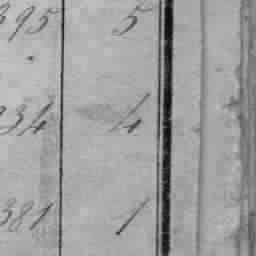 395 5
334 4
381 1